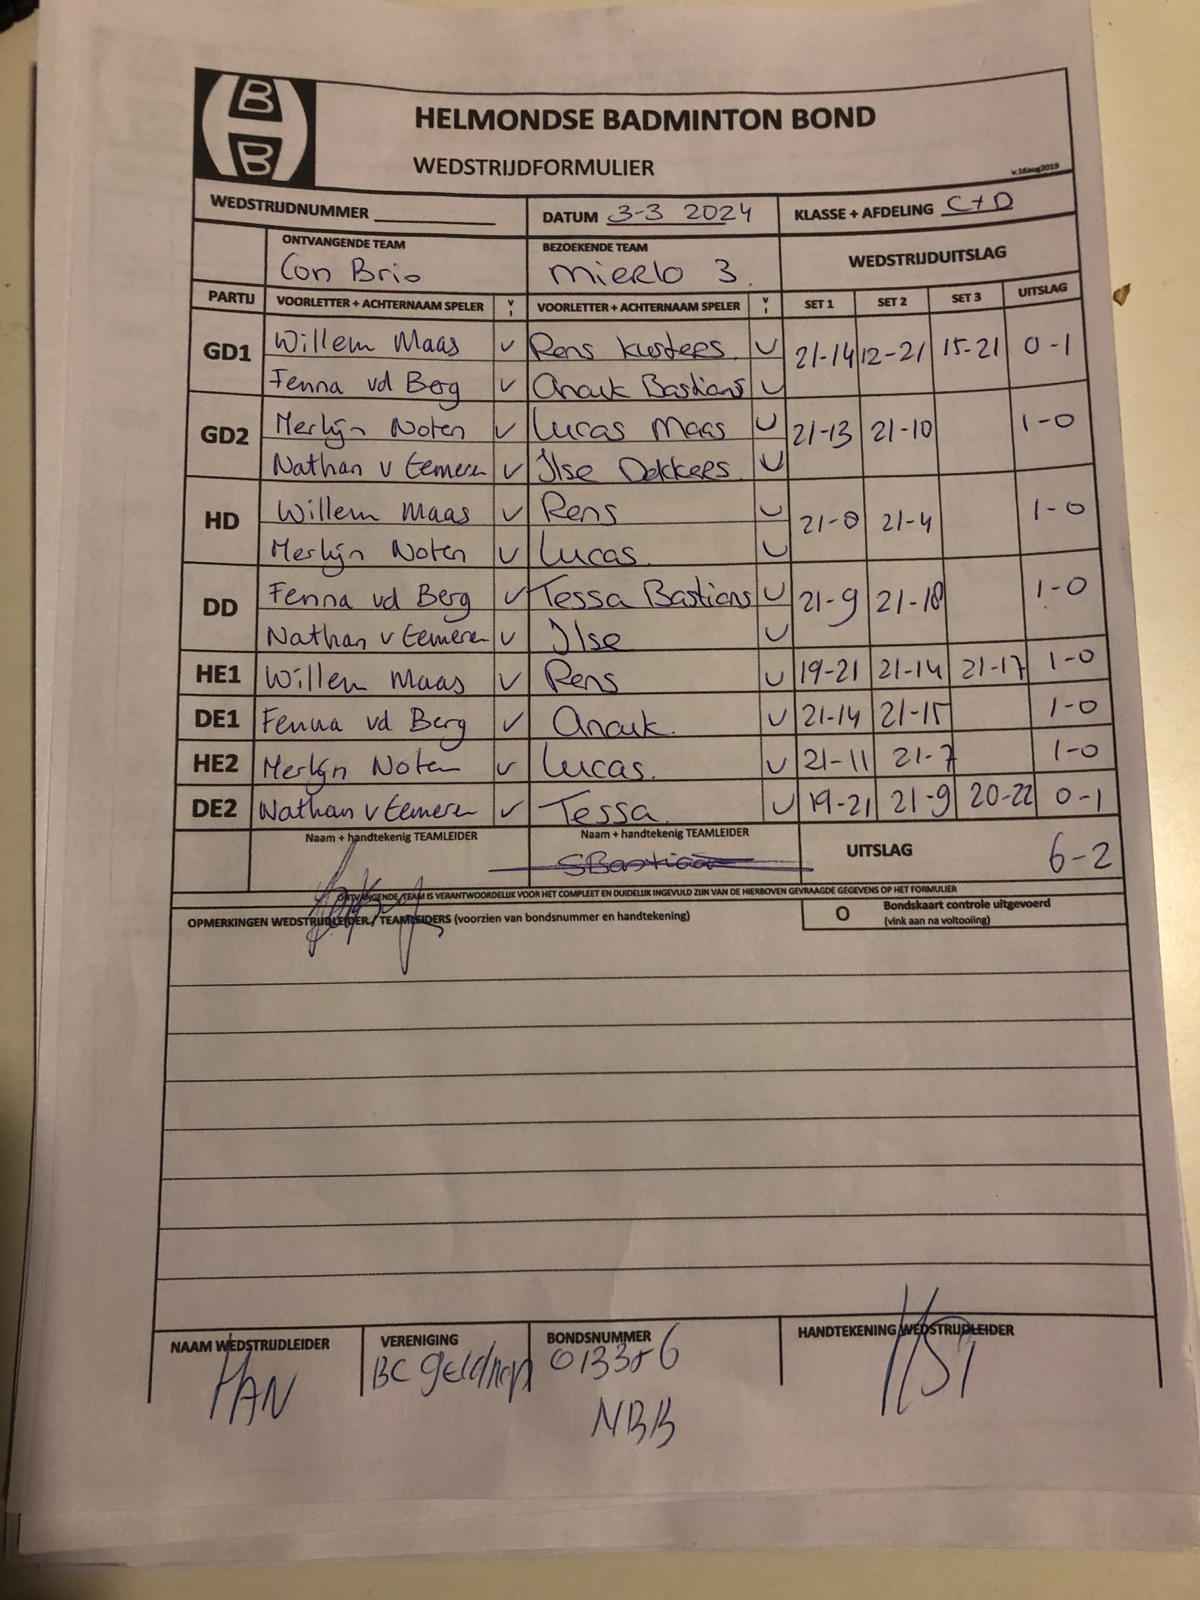 B
B
HELMONDSE BADMINTON BOND
WEDSTRIJDFORMULIER
v.16aug2019
WEDSTRIJDNUMMER DATUM 3-3 2024 KLASSE + AFDELING C+D
ONTVANGENDE TEAM BEZOEKENDE TEAM WEDSTRIJDUITSLAG
Con Brio Mierlo 3
PARTIJ VOORLETTER + ACHTERNAAM SPELER V I VOORLETTER + ACHTERNAAM SPELER V I SET 1 SET 2 SET 3 UITSLAG
GD1 Willem Maas v Rens Kusters v 21-14 12-21 15-21 0-1
Fenna vd Berg v Anouk Bastians v
GD2 Merlijn Noten v Lucas Maas v 21-13 21-10 1-0
Nathan v Eemeren v Ilse Dekkers v
HD Willem Maas v Rens v 21-8 21-4 1-0
Merlijn Noten v Lucas v
DD Fenna vd Berg v Tessa Bastians v 21-9 21-18 1-0
Nathan v Eemeren v Ilse v
HE1 Willem Maas v Rens v 19-21 21-14 21-17 1-0
DE1 Fenna vd Berg v Anouk v 21-14 21-15 1-0
HE2 Merlijn Noten v Lucas v 21-11 21-7 1-0
DE2 Nathan v Eemeren v Tessa v 19-21 21-9 20-22 0-1
Naam + handtekenig TEAMLEIDER Naam + handtekenig TEAMLEIDER UITSLAG 6-2
ONTVANGENDE TEAM IS VERANTWOORDELIJK VOOR HET COMPLEET EN DUIDELIJK INGEVULD ZIJN VAN DE HIERBOVEN GEVRAAGDE GEGEVENS OP HET FORMULIER
OPMERKINGEN WEDSTRIJDLEIDER / TEAMLEIDERS (voorzien van bondsnummer en handtekening) O Bondskaart controle uitgevoerd
(vink aan na voltooling)
NAAM WEDSTRIJDLEIDER VERENIGING BONDSNUMMER HANDTEKENING WEDSTRIJDLEIDER
HAN BC Geldrop 013386
NBB